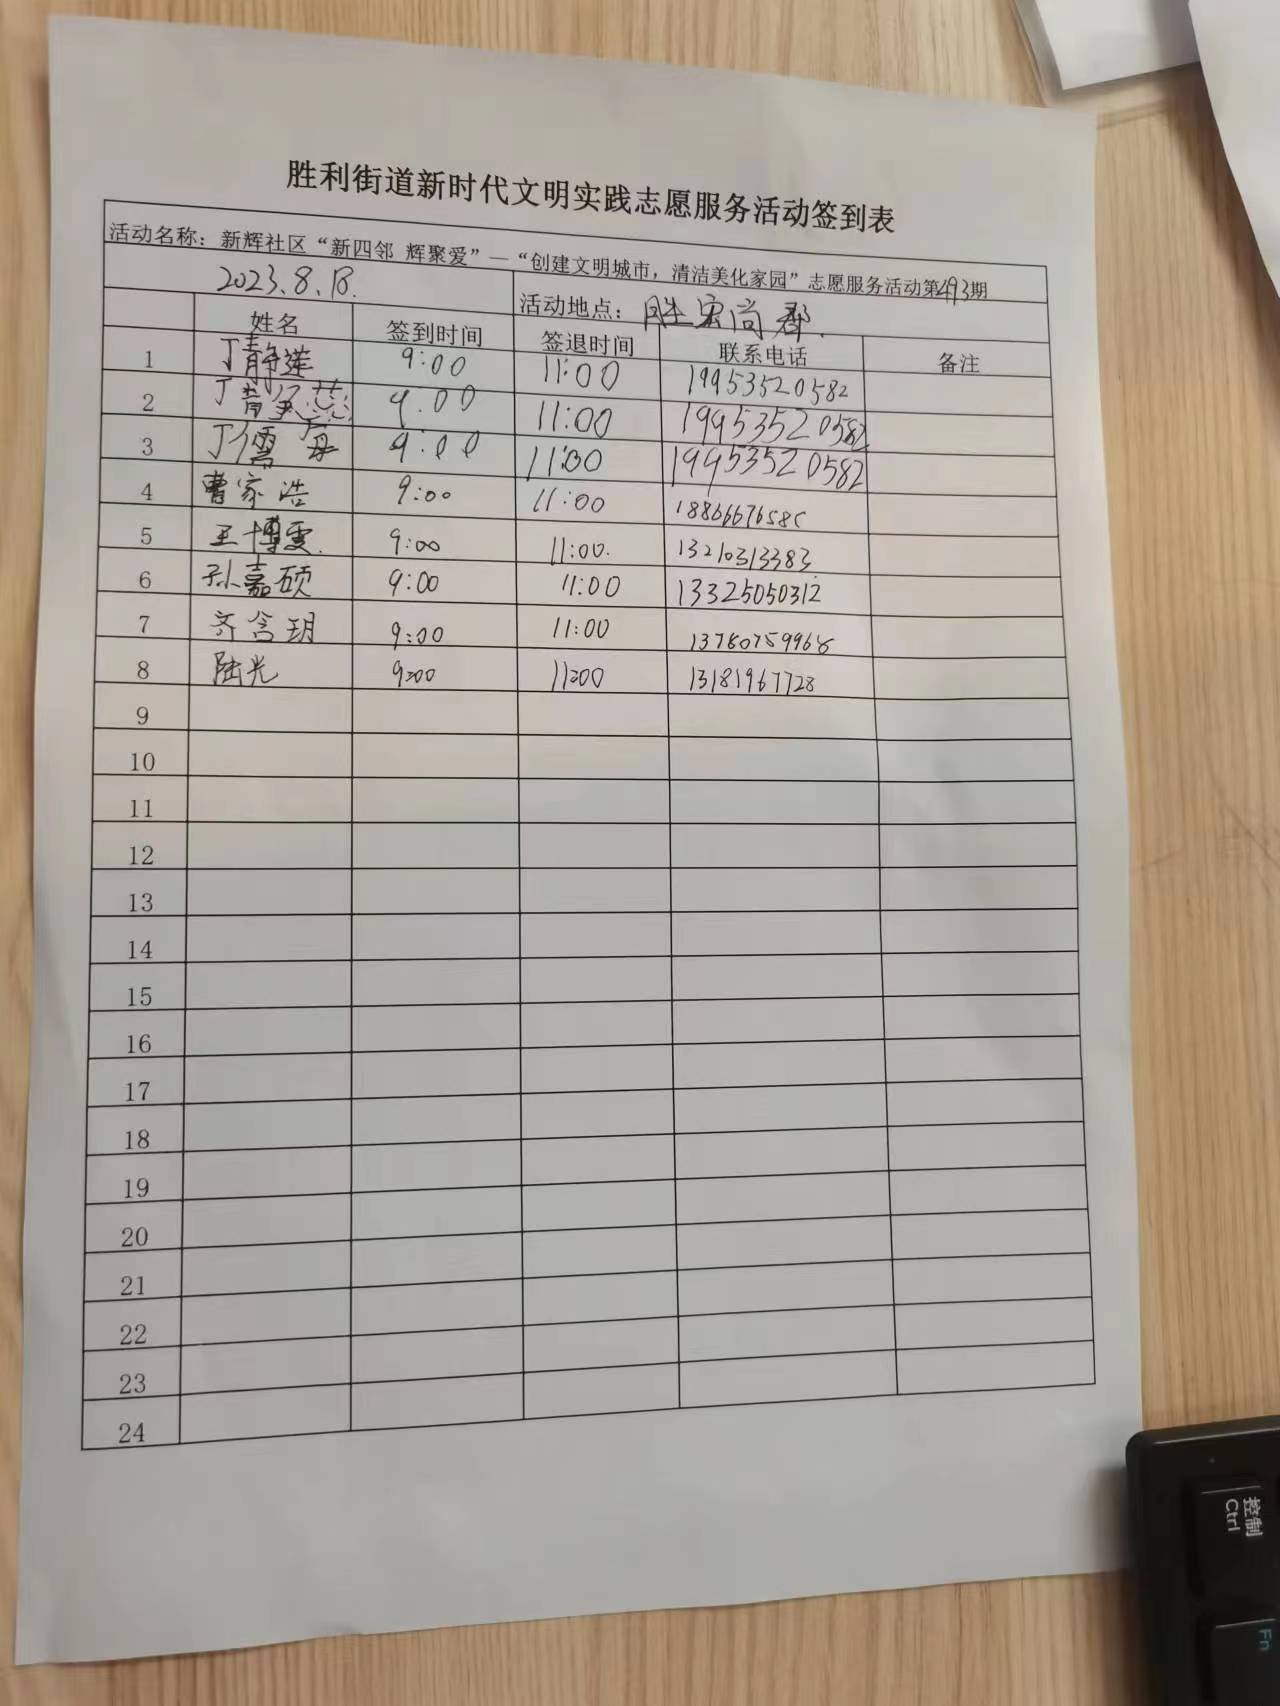 胜利街道新时代文明实践志愿服务活动签到表
活动名称：新辉社区“新四邻 辉聚爱”—“创建文明城市，清洁美化家园”志愿服务活动第493期
2023.8.18. 活动地点：胜宏尚都.
姓名 签到时间 签退时间 联系电话 备注
1 丁静莲 9:00 11:00 19953520582
2 丁 9:00 11:00 19953520582
3 丁儒 9:00 11:00 19953520582
4 曹家浩 9:00 11:00 1886667658
5 王博雯. 9:00 11:00. 13210313383
6 孙嘉硕 9:00 11:00 13325050312
7 齐含玥 9:00 11:00 13780759968
8 陆光 9:00 11:00 13181967728
9
10
11
12
13
14
15
16
17
18
19
20
21
22
23
24
控制
Ctrl
Fn